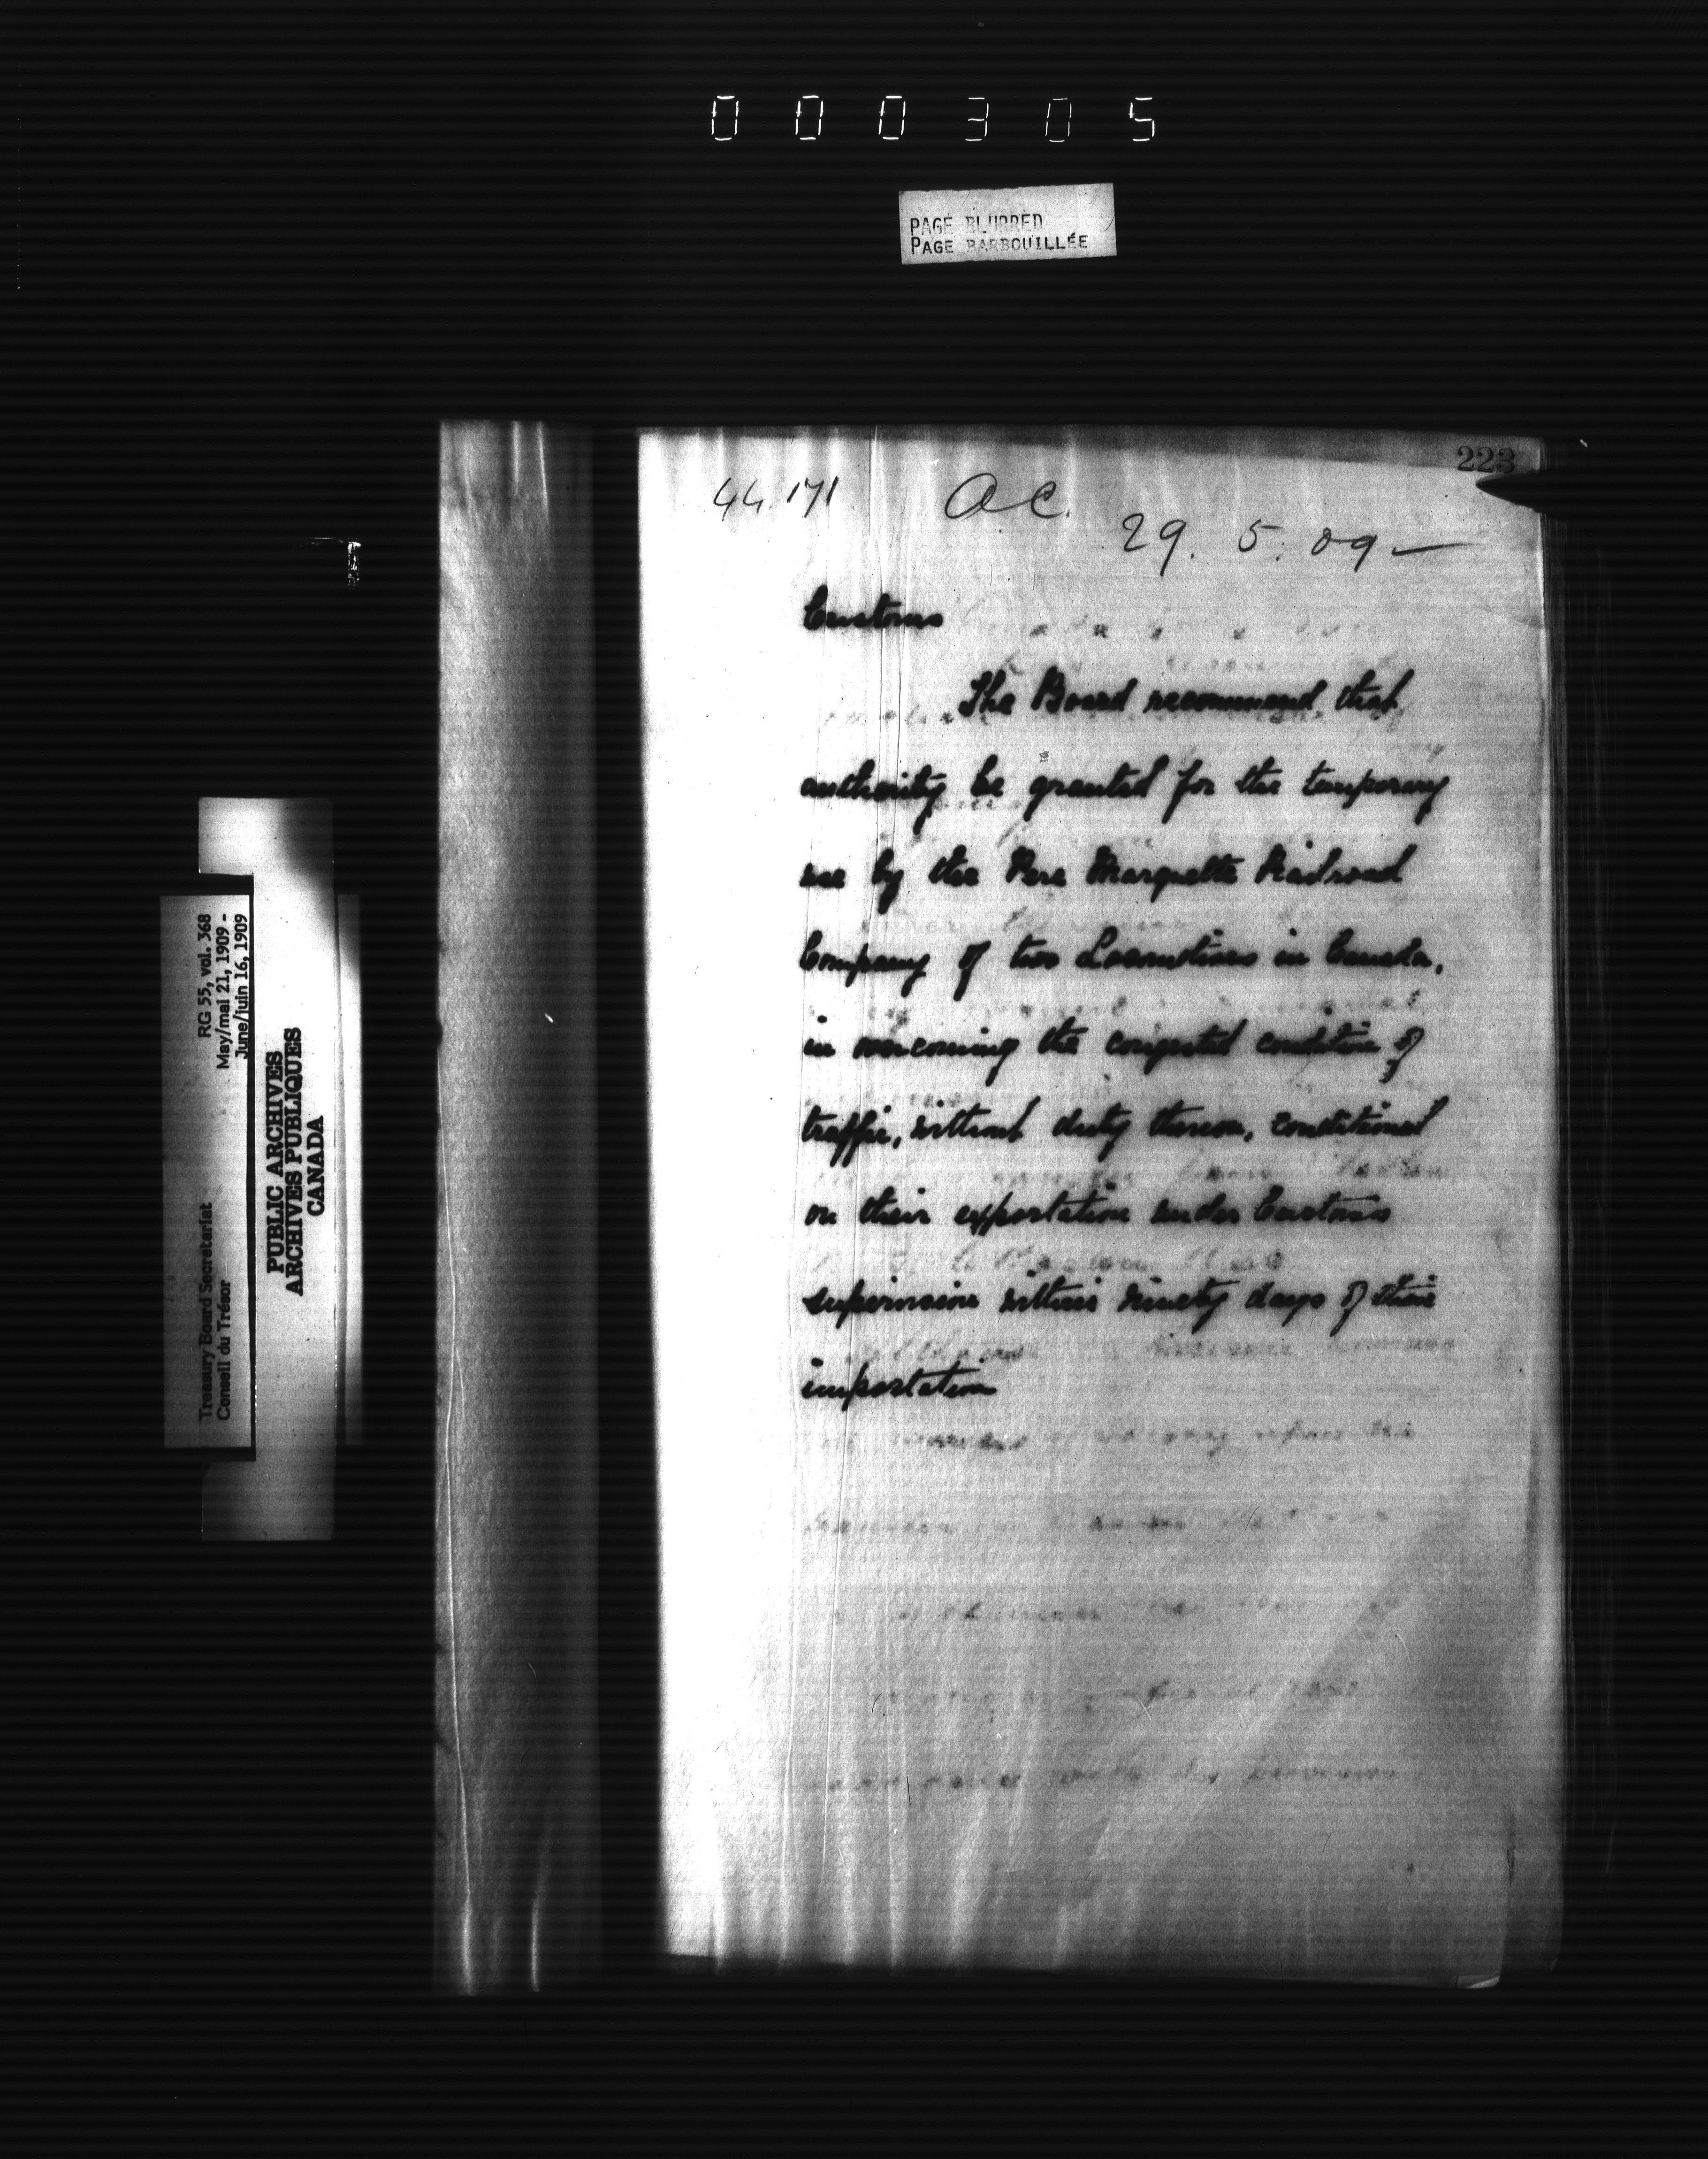 000305
PAGE BLURRED
PAGE BARBOUILLÉE
223
44.171 O C.
29. 5. 09 —
Customs
The Board recommend that
authority be granted for the temporary
use by the Pere Marquette Railroad
Company of two Locomotives in Canada,
in overcoming the congested condition of
traffic, without duty thereon, conditional
on their exportation under Customs
supervision within ninety days of their
importation
RG 55, vol. 368
May/mai 21, 1909 -
June/juin 16, 1909
Treasury Board Secretariat
Conseil du Trésor
PUBLIC ARCHIVES
ARCHIVES PUBLIQUES
CANADA